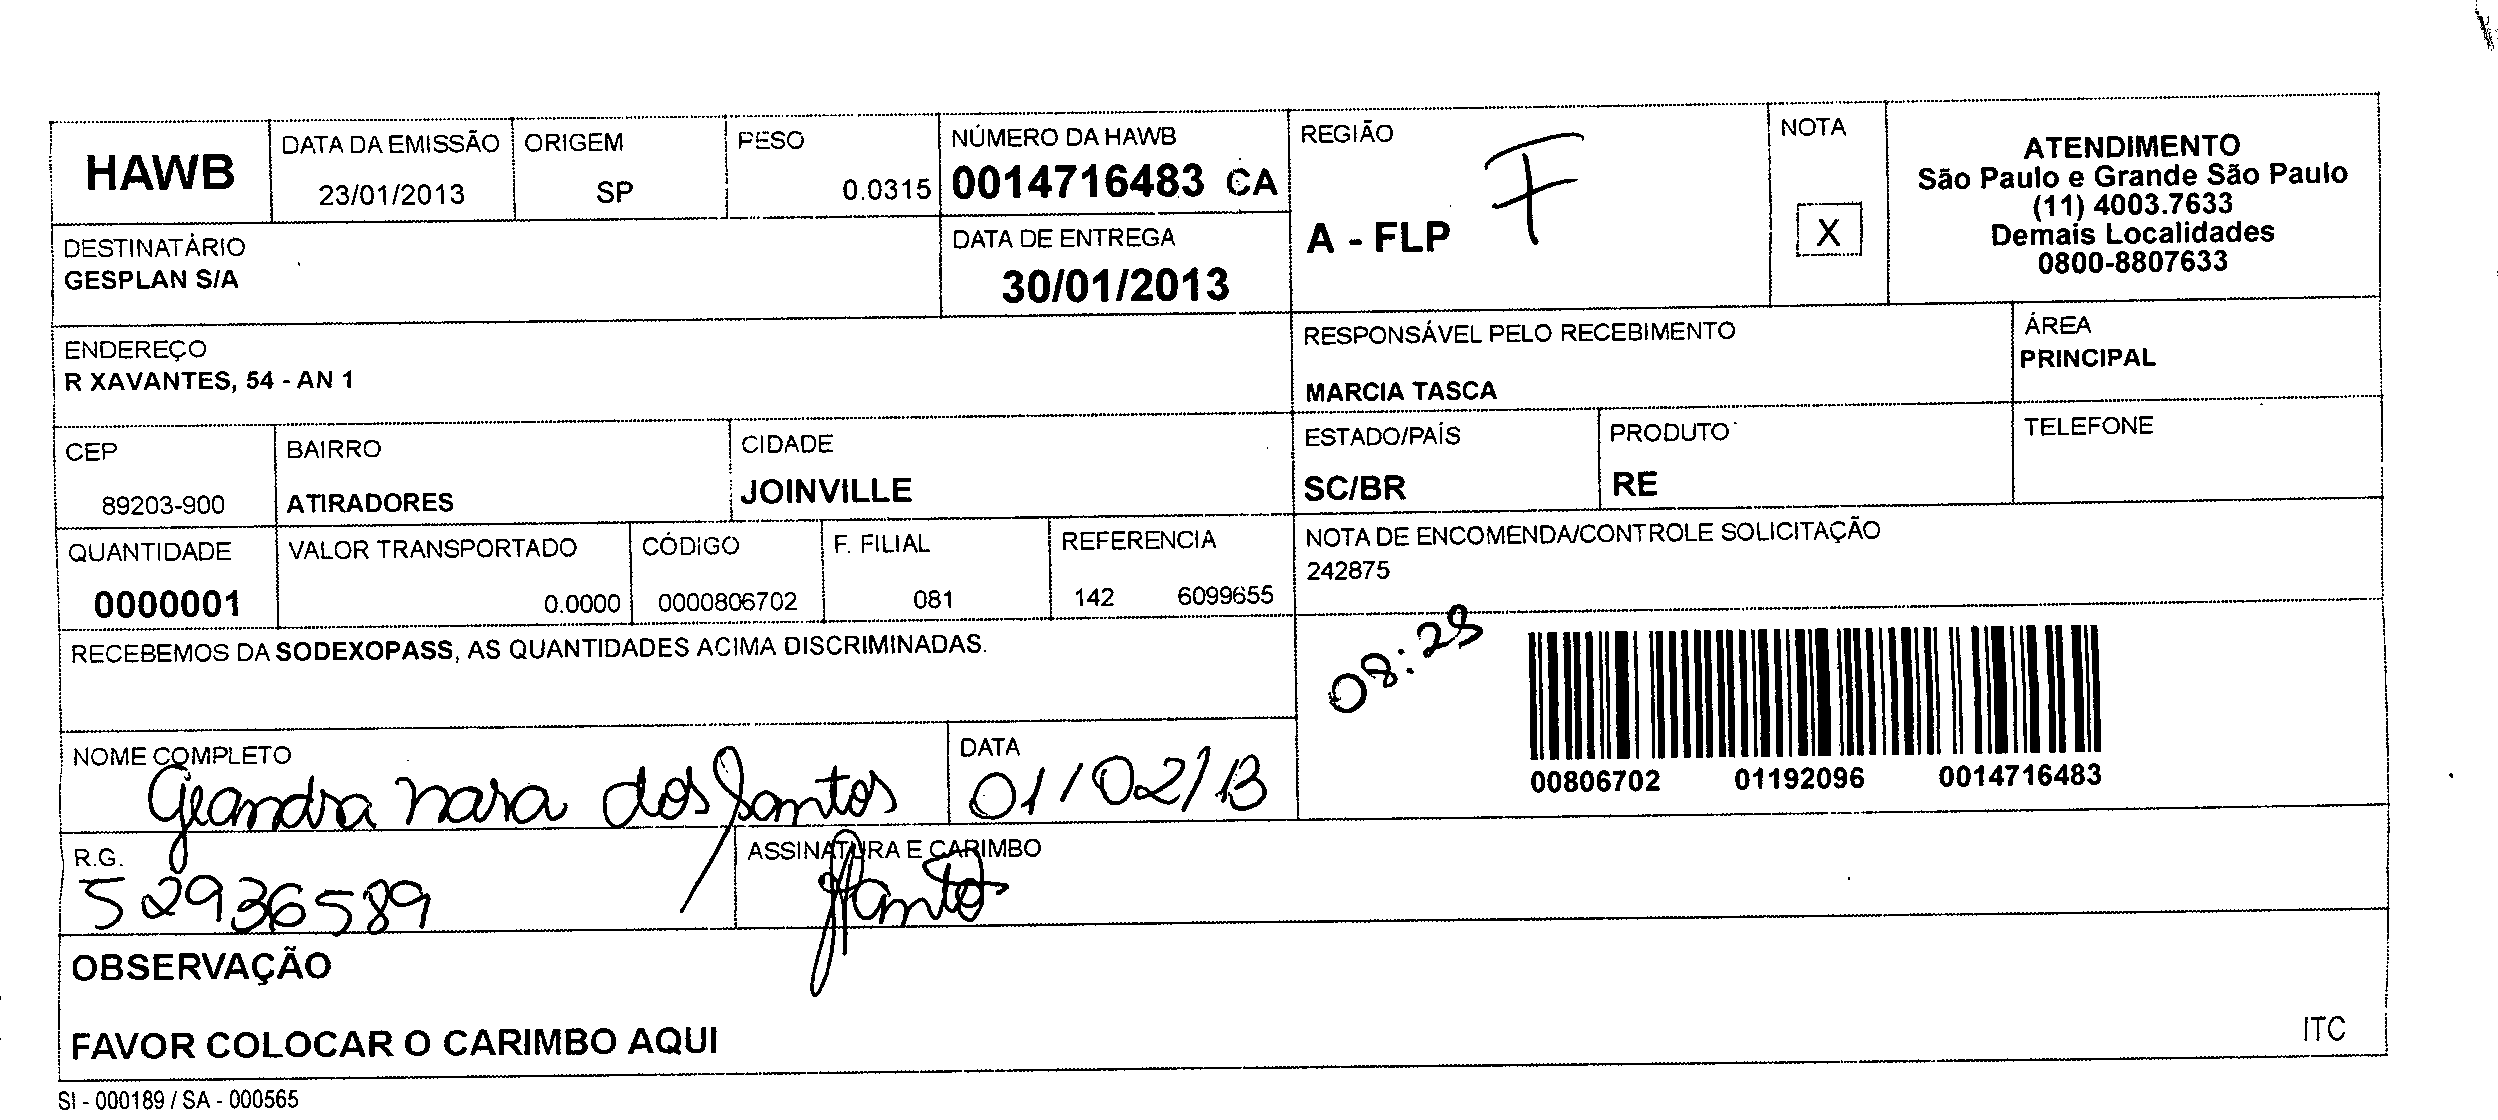 HAWB
DATA DA EMISSÃO
23/01/2013
ORIGEM
SP
PESO
0.0315
NÚMERO DA HAWB
0014716483 CA
REGIÃO
A - FLP
F
NOTA
X
ATENDIMENTO
São Paulo e Grande São Paulo
(11) 4003.7633
Demais Localidades
0800-8807633
DESTINATÁRIO
GESPLAN S/A
DATA DE ENTREGA
30/01/2013
ENDEREÇO
R XAVANTES, 54 - AN 1
RESPONSÁVEL PELO RECEBIMENTO
MARCIA TASCA
ÁREA
PRINCIPAL
CEP
89203-900
BAIRRO
ATIRADORES
CIDADE
JOINVILLE
ESTADO/PAÍS
SC/BR
PRODUTO
RE
TELEFONE
QUANTIDADE
0000001
VALOR TRANSPORTADO
0.0000
CÓDIGO
0000806702
F. FILIAL
081
REFERENCIA
142 6099655
NOTA DE ENCOMENDA/CONTROLE SOLICITAÇÃO
242875
RECEBEMOS DA SODEXOPASS, AS QUANTIDADES ACIMA DISCRIMINADAS.
08:28
00806702 01192096 0014716483
NOME COMPLETO
Geandra nara dos Santos
DATA
01/02/13
R.G.
52936589
ASSINATURA E CARIMBO
Santos
OBSERVAÇÃO
FAVOR COLOCAR O CARIMBO AQUI
ITC
SI - 000189 / SA - 000565